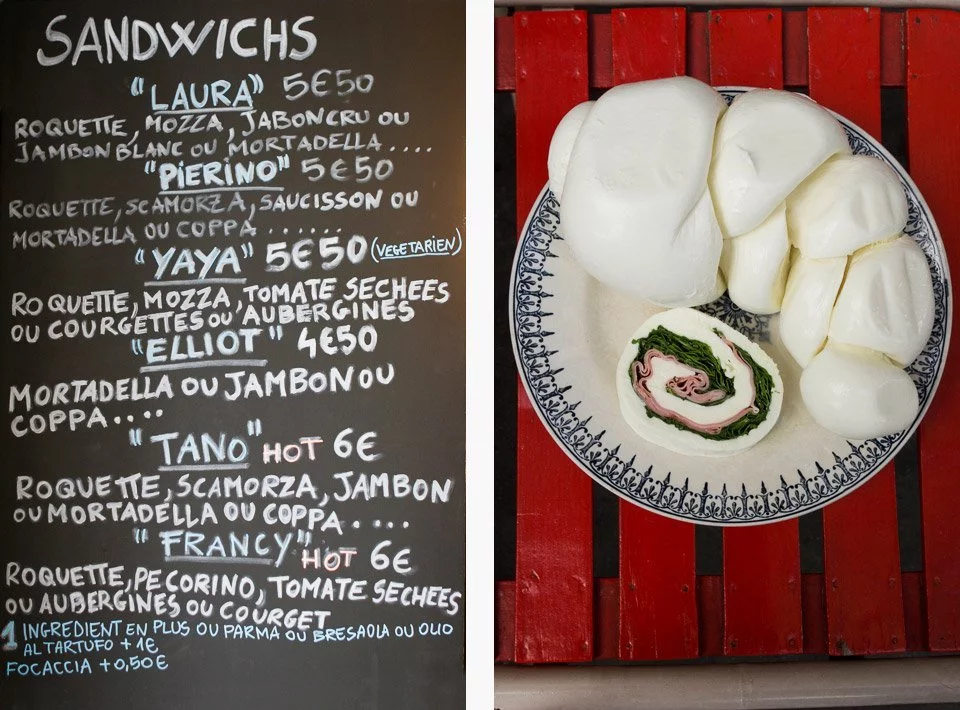 SANDWICHS
"LAURA" 5€50
ROQUETTE, MOZZA, JABONCRU OU
JAMBON BLANC OU MORTADELLA....
"PIERINO" 5€50
ROQUETTE, SCAMORZA, SAUCISSON OU
MORTADELLA OU COPPA.......
"YAYA" 5€50 (VEGETARIEN)
ROQUETTE, MOZZA, TOMATE SECHEES
OU COURGETTES OU AUBERGINES
"ELLIOT" 4€50
MORTADELLA OU JAMBON OU
COPPA....
"TANO" HOT 6€
ROQUETTE, SCAMORZA, JAMBON
OU MORTADELLA OU COPPA....
"FRANCY" HOT 6€
ROQUETTE, PECORINO, TOMATE SECHEES
OU AUBERGINES OU COURGET
1 INGREDIENT EN PLUS OU PARMA OU BRESAOLA OU OLIO
AL TARTUFO +1€
FOCACCIA +0,50€